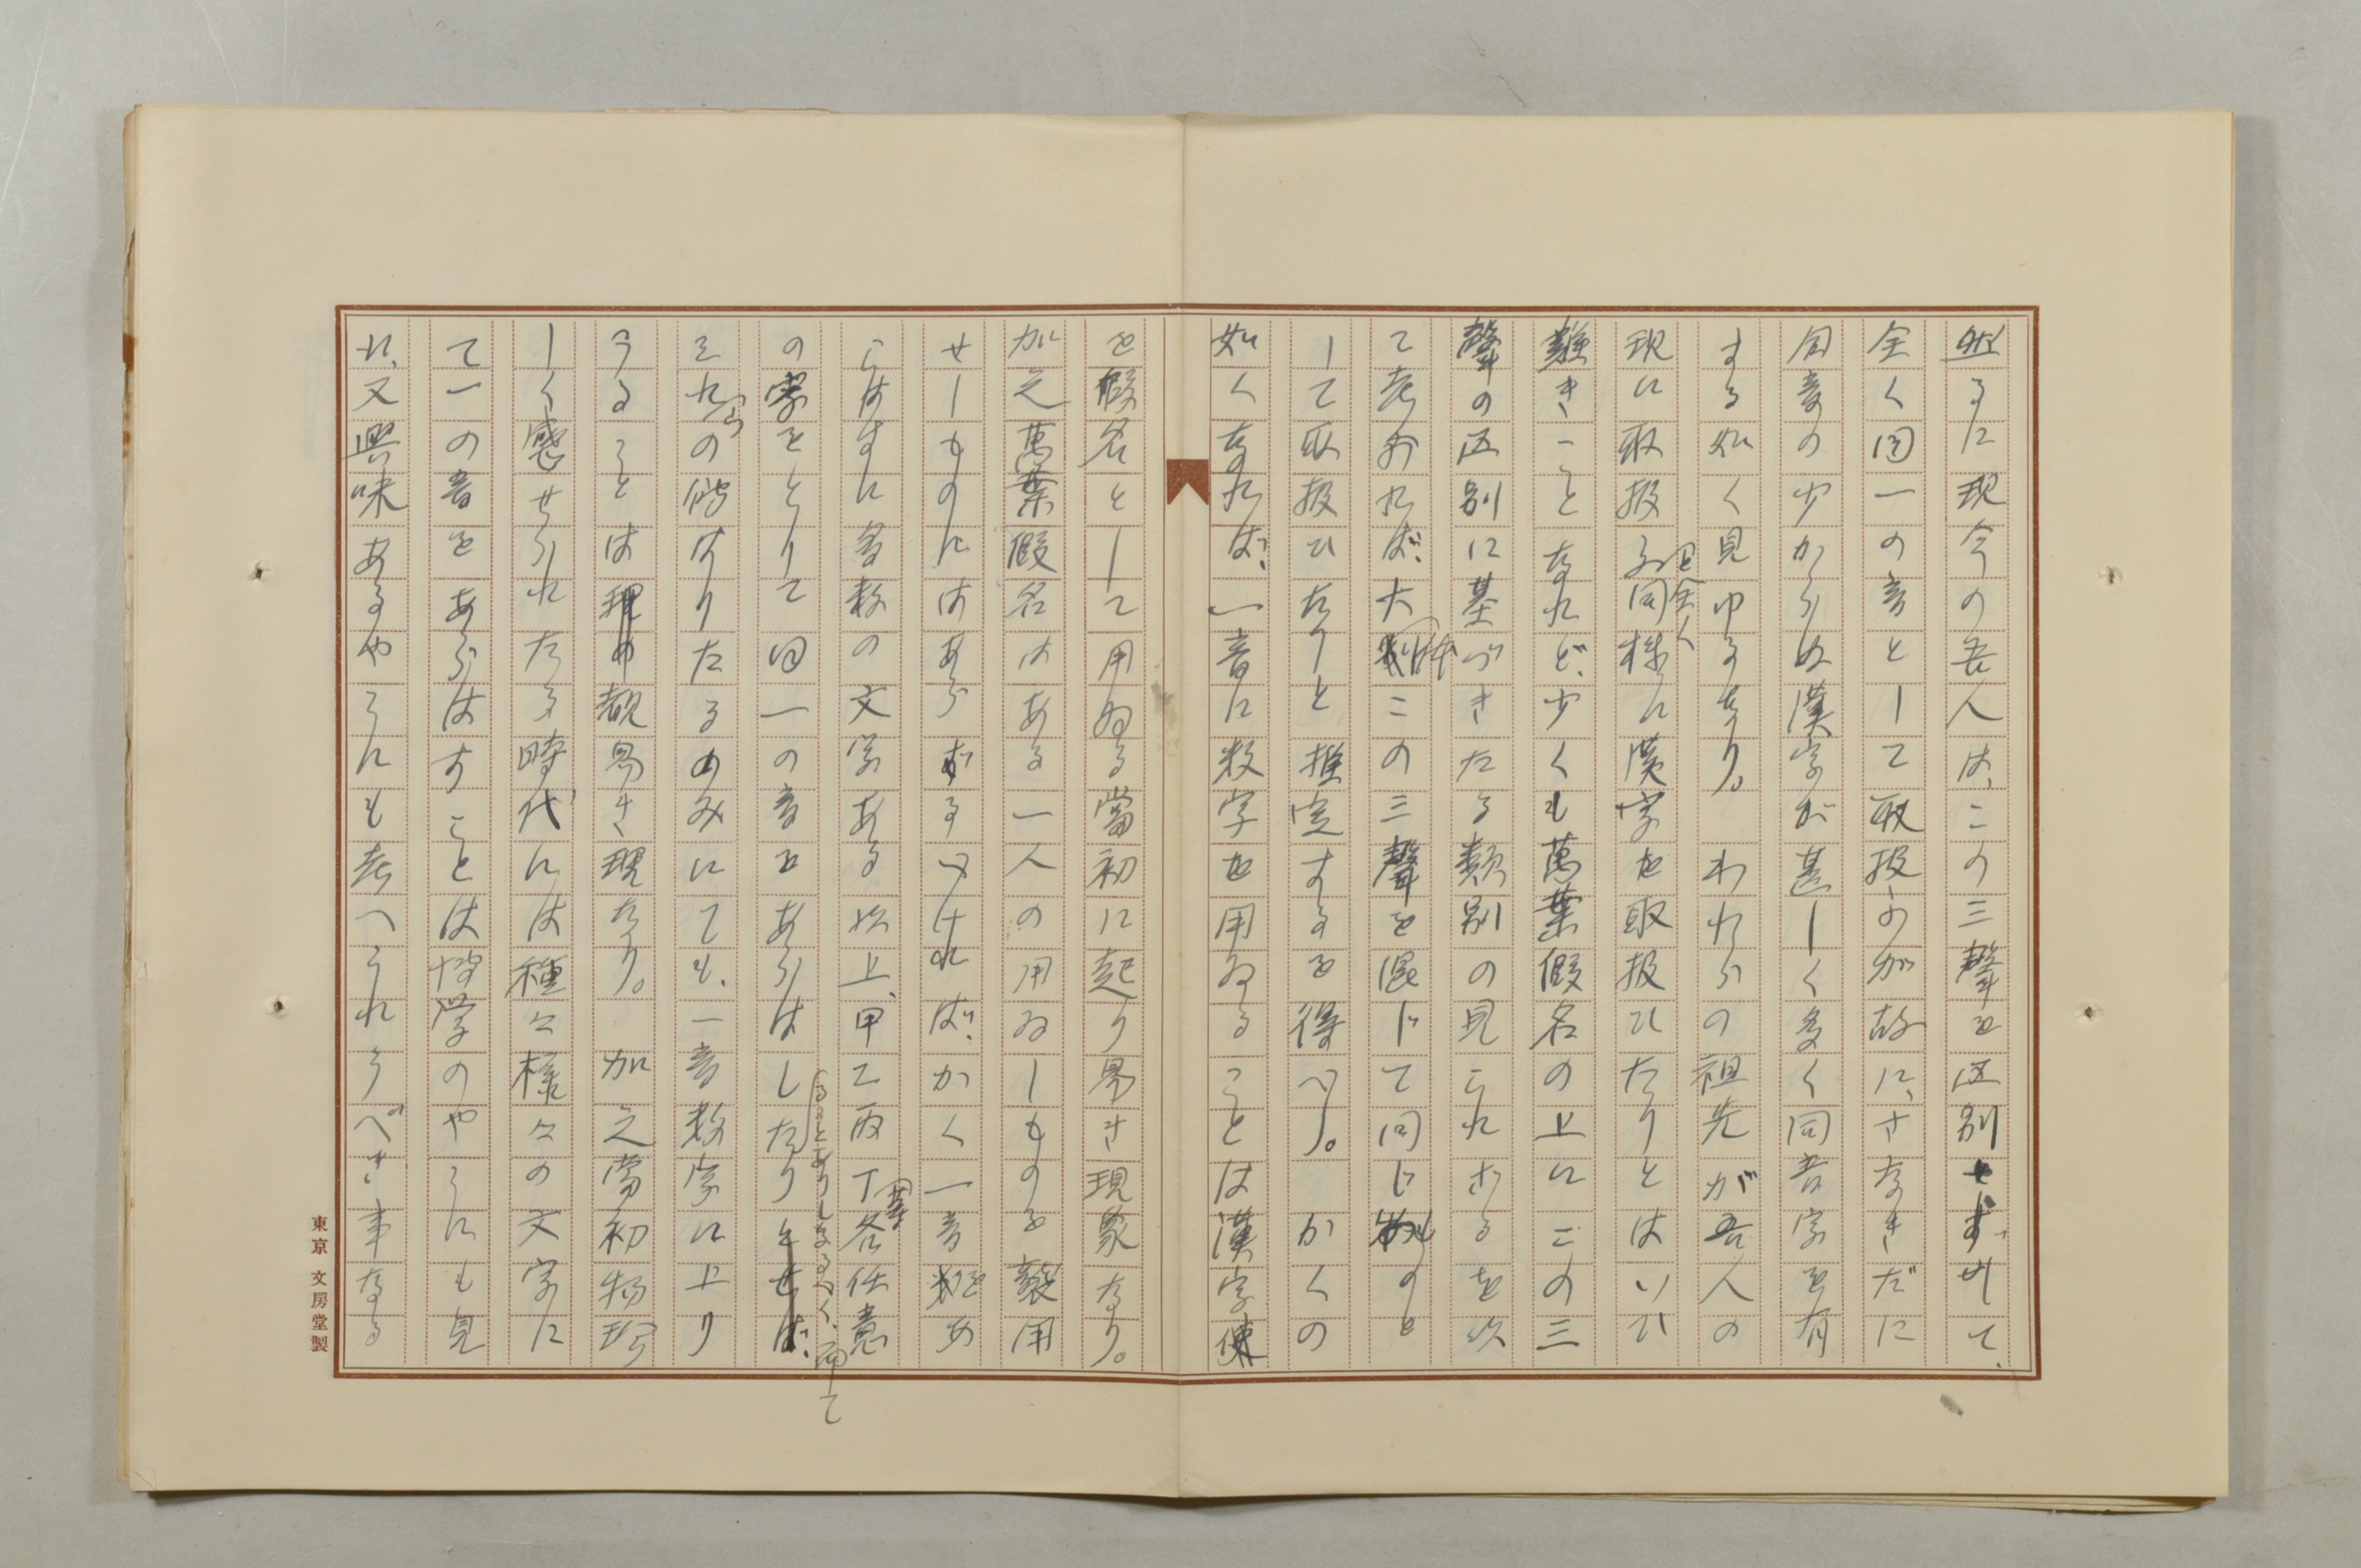 然るに現今の吾人は、この三聲を区別せずして、
全く同一の音として取扱ふが故に、さなきだに
同音の少からぬ漢字が甚しく多く同音字を有
する如く見ゆるなり。われらの祖先が吾人の
現に取扱ると全く同様に漢字を取扱ひたりとはいひ
難きことなれど、少くも萬葉假名の上にこの三
聲の区別に基づきたる類別の見られざるを以
て考ふれば、大体この三聲を混じて同じものと
して取扱ひたりしと推定するを得べし。かくの
如くなれば、一音に数字を用ゐることは漢字
を假名として用ゐる當初に起り易き現象なり。
加之萬葉假名はある一人の用ゐしものを襲用
せしものにはあらざるべければ、かく一音を
らはすに多数の文字ある以上、甲乙丙丁各任意
の字をとりて同一の音をあらはし
たることありしなるべく、而て
それらの偕はりたるのみにても、一音数字に上り
うることは覩易き現なり。加之當初物珍
しく感ぜられたる時代には種々様々の文字に
て一の音をあらはすことは博学のやうにも見
え、又興味あるやうにも考へられうべき事なる
東京 文房堂製